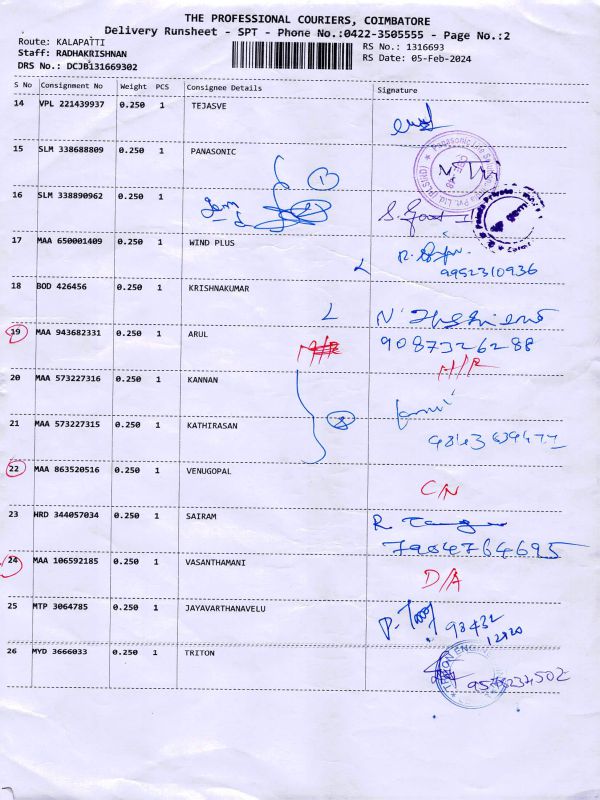 THE PROFESSIONAL COURIERS, COIMBATORE
Delivery Runsheet - SPT - Phone No.:0422-3505555 - Page No.:2
Route: KALAPATTI
Staff: RADHAKRISHNAN
DRS No.: DCJB131669302
RS No.: 1316693
RS Date: 05-Feb-2024
S No Consignment No Weight PCS Consignee Details Signature
14 VPL 221439937 0.250 1 TEJASVE
15 SLM 338688809 0.250 1 PANASONIC
16 SLM 338890962 0.250 1
17 MAA 650001409 0.250 1 WIND PLUS
9952310936
18 BOD 426456 0.250 1 KRISHNAKUMAR
19 MAA 943682331 0.250 1 ARUL
9087326288
20 MAA 573227316 0.250 1 KANNAN
21 MAA 573227315 0.250 1 KATHIRASAN
22 MAA 863520516 0.250 1 VENUGOPAL
C/N
23 HRD 344057034 0.250 1 SAIRAM
7904764695
24 MAA 106592185 0.250 1 VASANTHAMANI
D/A
25 MTP 3064785 0.250 1 JAYAVARTHANAVELU
26 MYD 3666033 0.250 1 TRITON